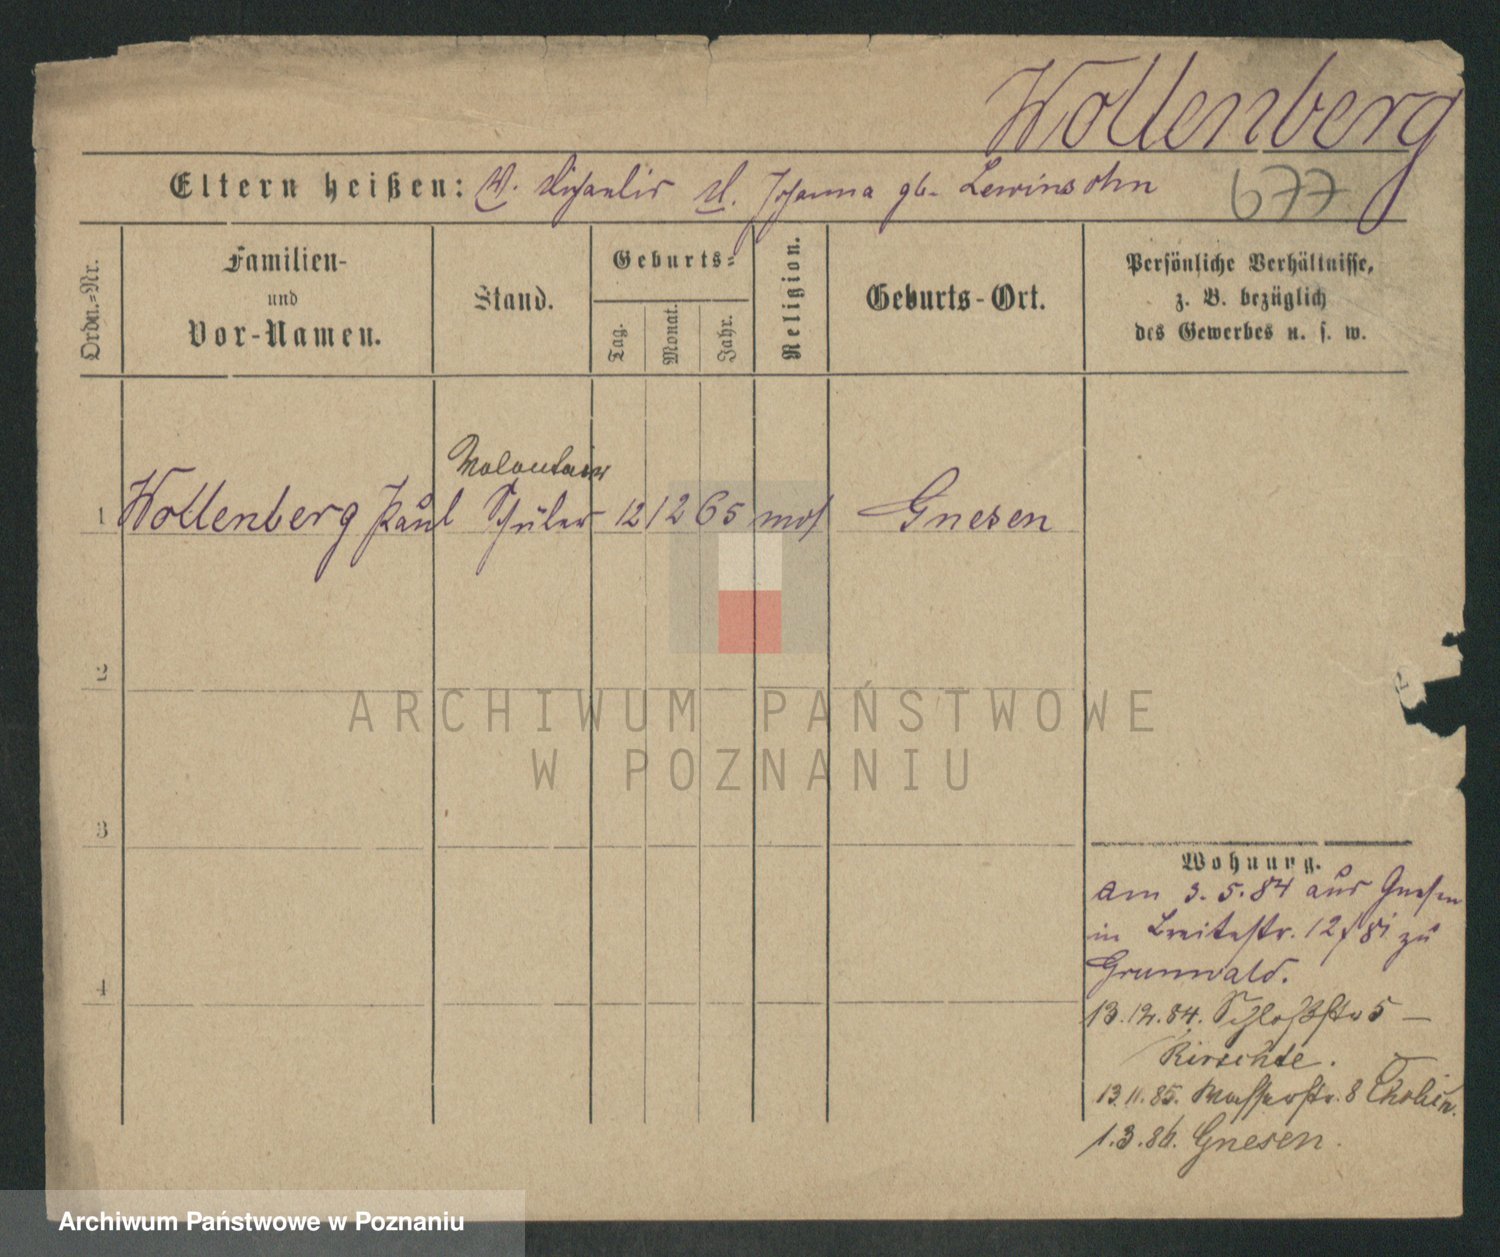 Wollenberg
Eltern heißen: W. Michaelis u. Johanna gb. Lewinsohn
677
Ordn.=Nr.
Familien-
und
Vor-Namen.
Stand.
Geburts=
Tag.
Monat.
Jahr.
Religion.
Geburts-Ort.
Persönliche Verhältnisse,
z. B. bezüglich
des Gewerbes u. s. w.
Volontair
1 Wollenberg Paul Schüler 12 12 65 mos Gnesen
2
ARCHIWUM PAŃSTWOWE
W POZNANIU
3
Wohnung.
Am 3.5.84 aus Gnesen
in Breitestr. 12 zu
Grunwald.
4
13.12.84. Schloßstr 5 –
13.11.85. Wasserstr. 8
1.3.86. Gnesen.
Archiwum Państwowe w Poznaniu